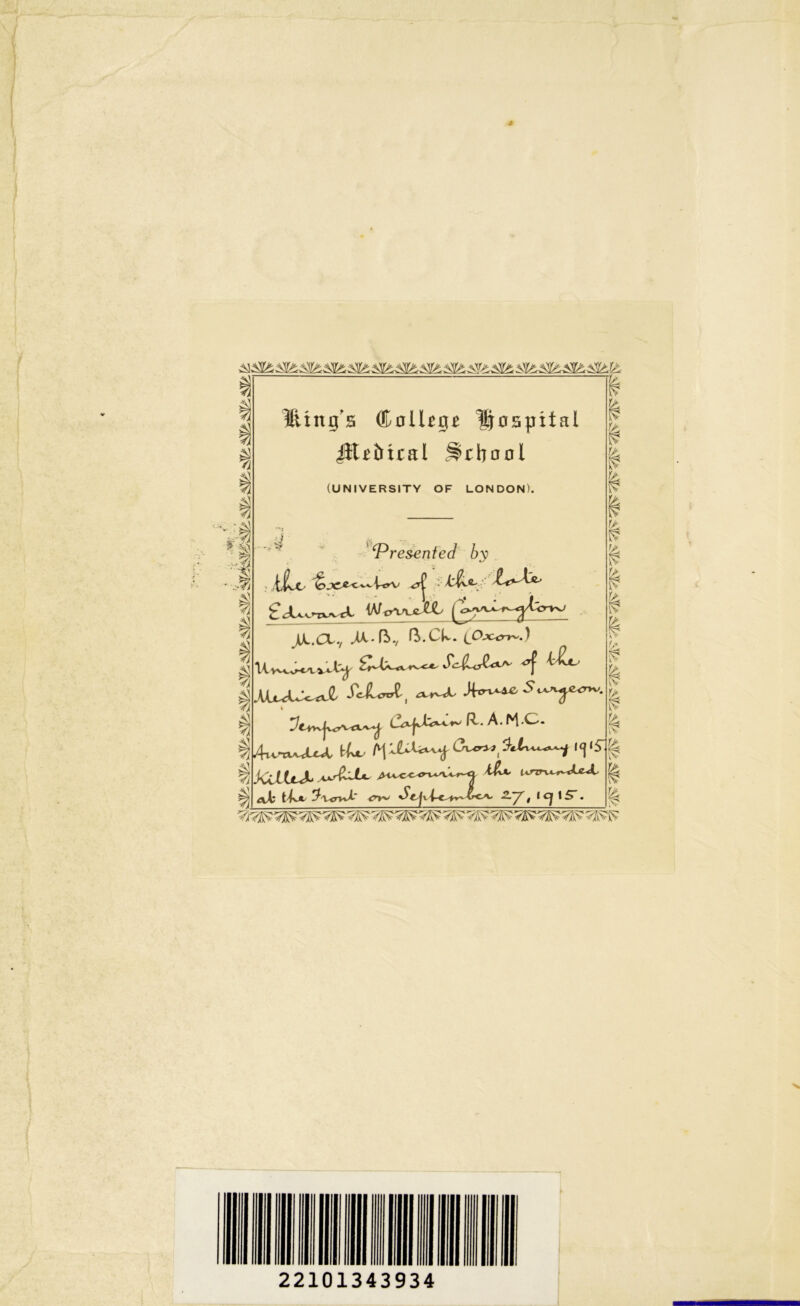 King's College Hospital
Medical School
(UNIVERSITY OF LONDON).
Presented by
the Executor of the late
Edmund Worrell Connington
M.A., M.B., B.Ch. (Oxon.)
University Entrance Scholar of the
Medical School, and House Surgeon.
Temporary Captain R.A.M.C.
Awarded the Military Cross, February 1915
Killed while succouring the wounded
at the Front on September 27, 1915.
22101343934